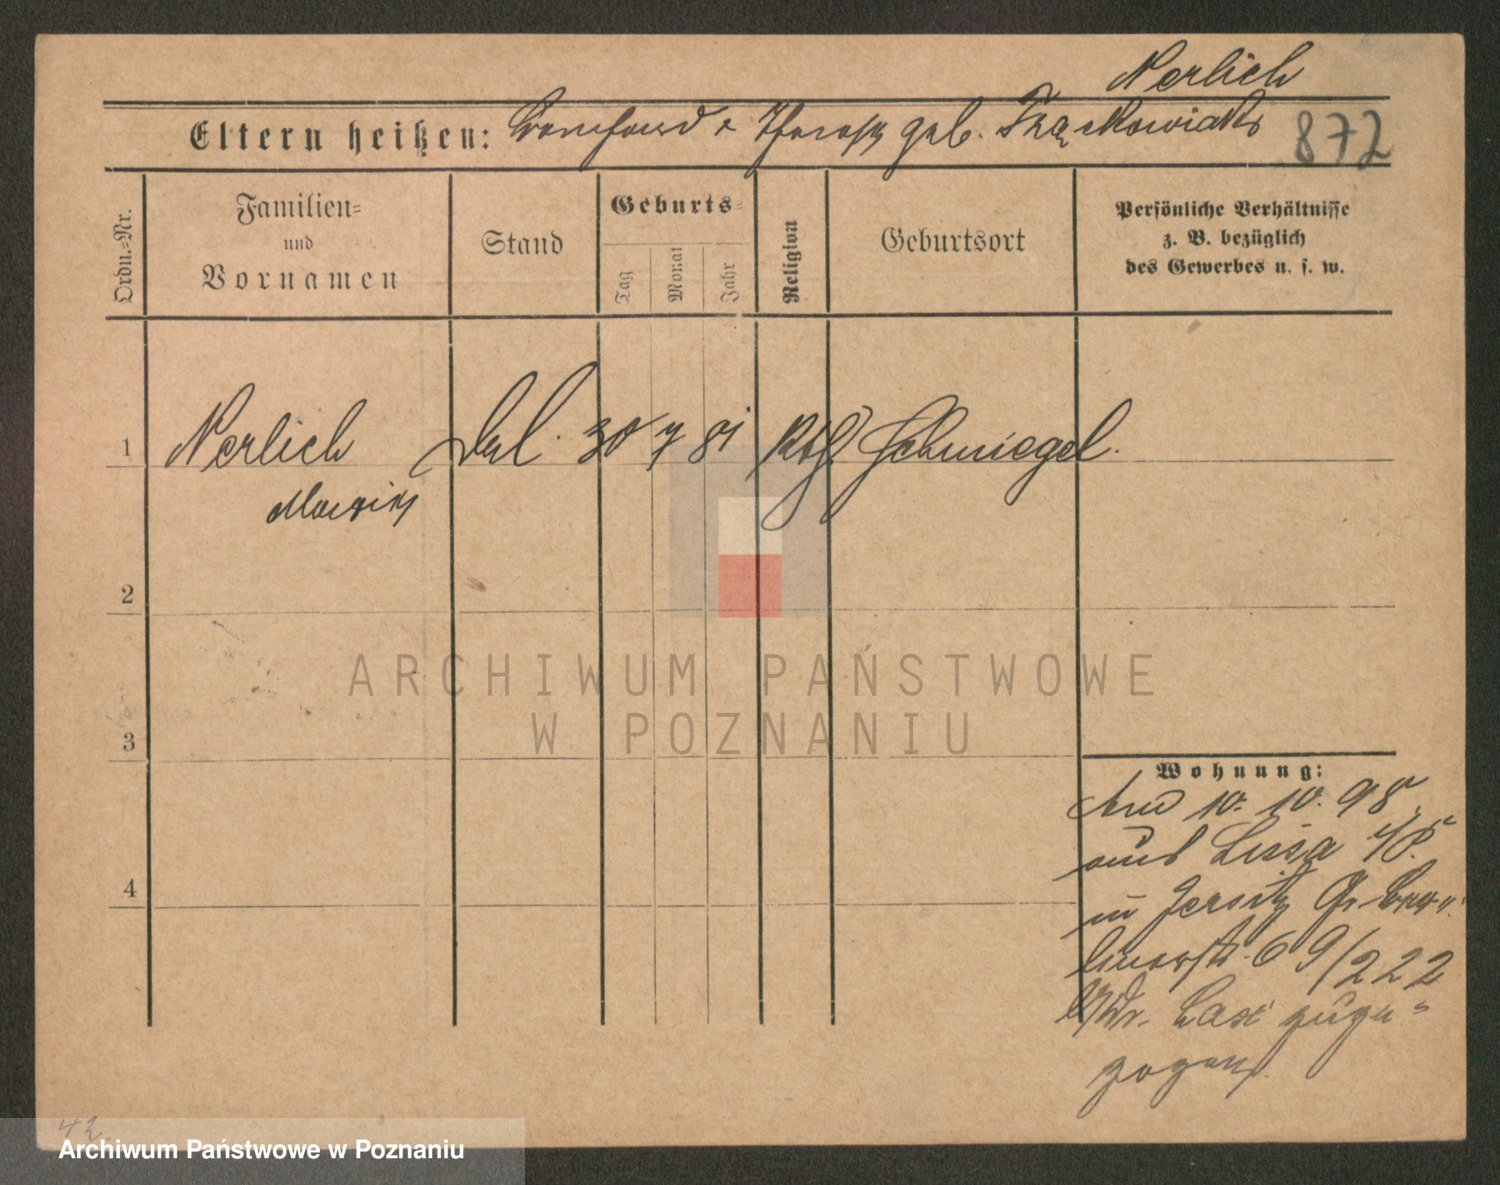 Nerlich
Eltern heißen: geb. 872
Ordn.-Nr.
Familien-
und
Vornamen
Stand
Geburts-
Tag
Monat
Jahr
Religion
Geburtsort
Persönliche Verhältnisse
z. B. bezüglich
des Gewerbes u. s. w.
1 Nerlich 30 7 81 Kth. Schmiegel.
2
3
4
Wohnung:
10. 10. 98
aus Lissa i/P.
in Jersitz Gr. Ber-
linerstr. 69/222
zuge-
zogen.
42
ARCHIWUM PAŃSTWOWE
W POZNANIU
Archiwum Państwowe w Poznaniu